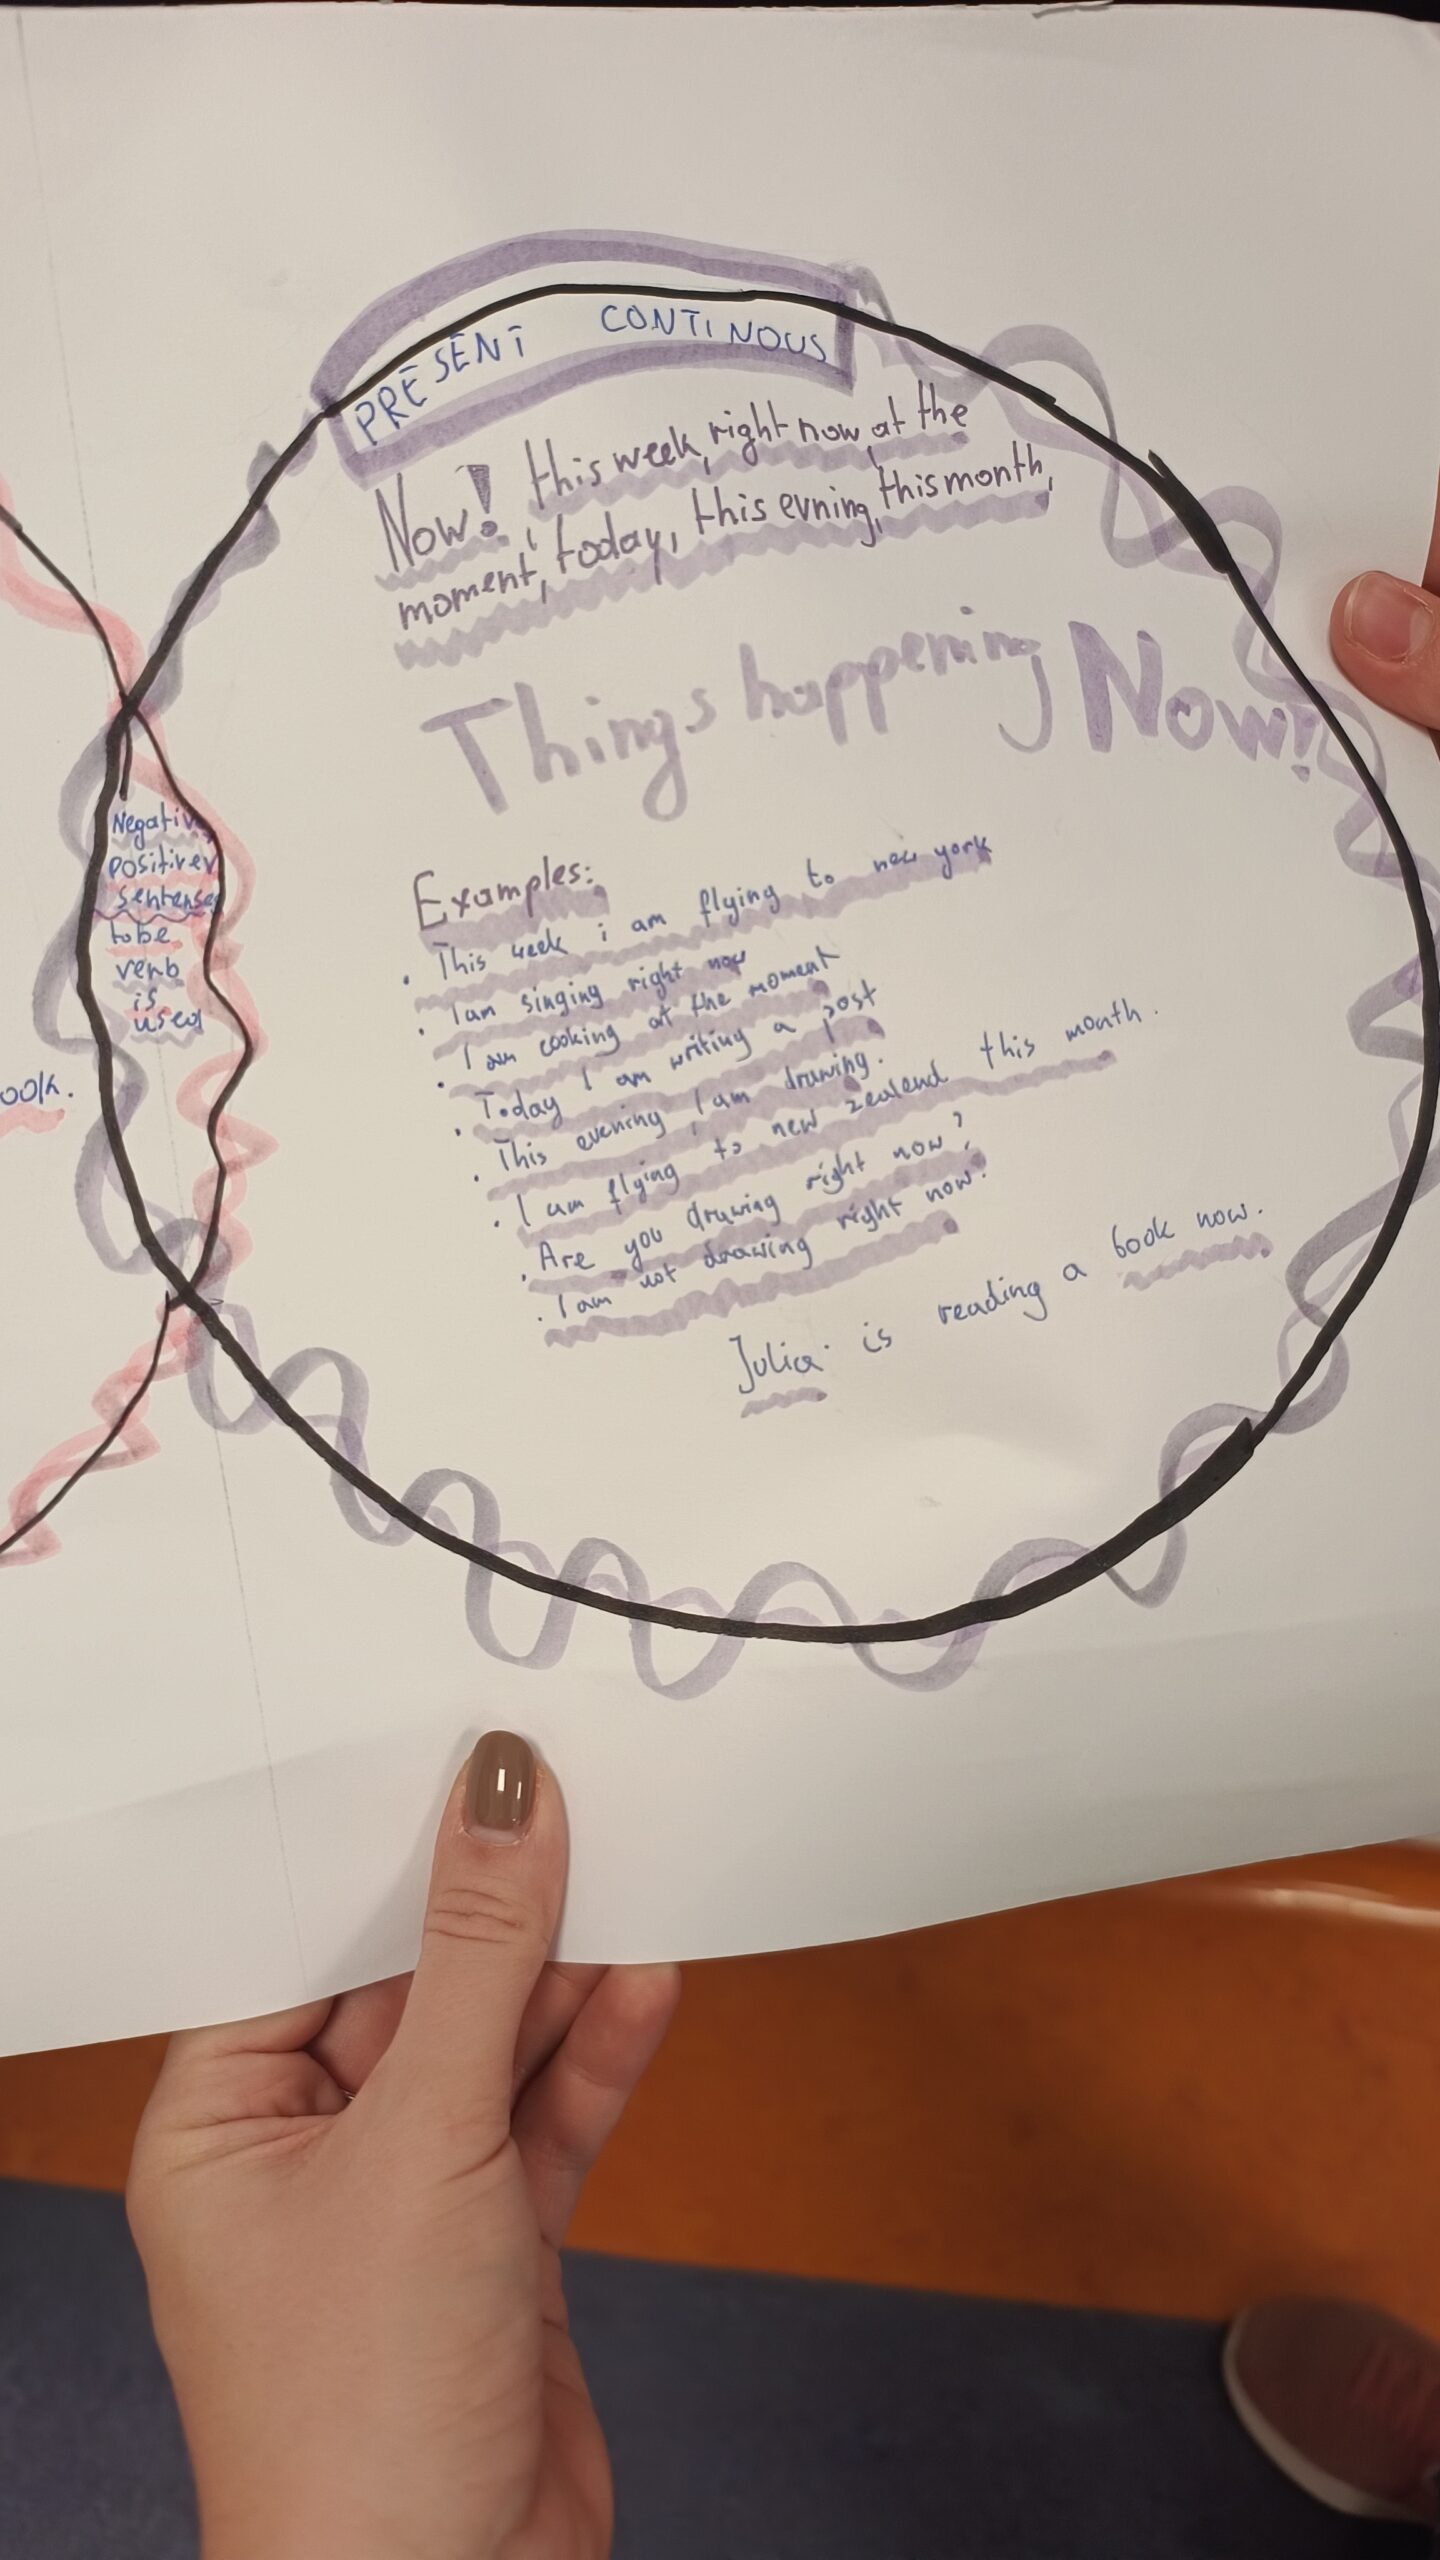 PRESENT CONTINOUS
Now! this week, right now, at the
moment, today, this evning, this month,
Things happening Now!
Negative,
positive
sentense
to be
verb
is
used
ook.
Examples:
• This week i am flying to new york
• I am singing right now
• I am cooking at the moment
• Today I am writing a post
• This evening, I am drawing.
• I am flying to new zealend this month.
• Are you drawing right now?
• I am not drawing right now.
Julia is reading a book now.